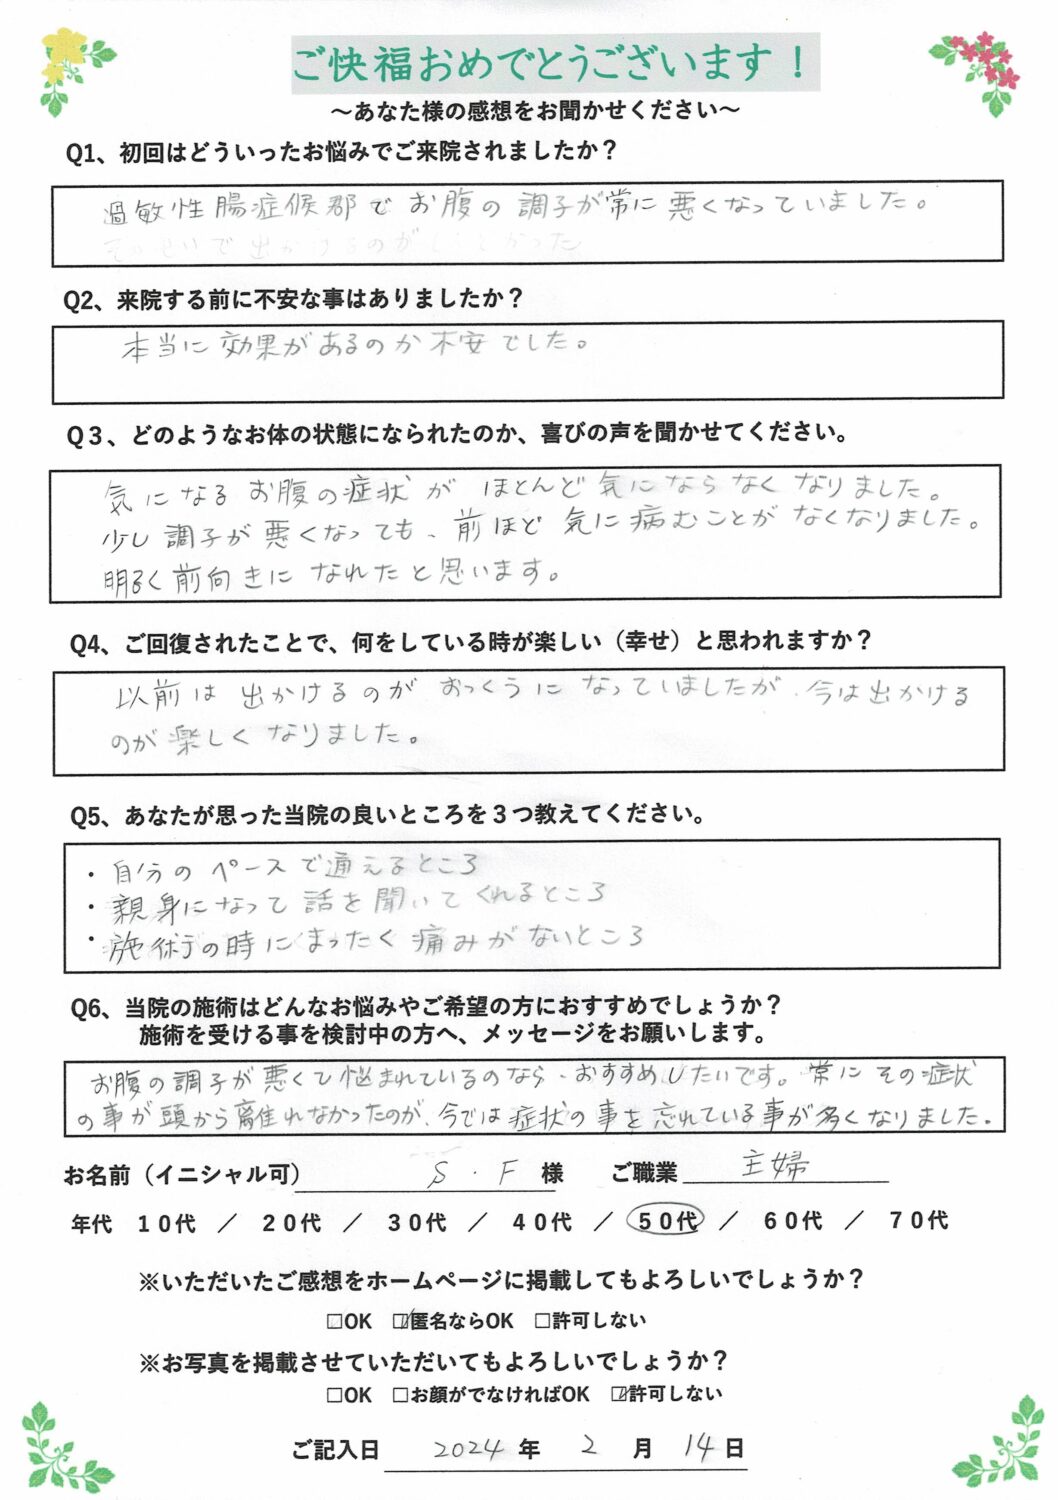 ご快福おめでとうございます！
～あなた様の感想をお聞かせください～
Q1、初回はどういったお悩みでご来院されましたか？
過敏性腸症候郡でお腹の調子が常に悪くなっていました。
そのせいで出かけるのが
Q2、来院する前に不安な事はありましたか？
本当に効果があるのか不安でした。
Q３、どのようなお体の状態になられたのか、喜びの声を聞かせてください。
気になるお腹の症状がほとんど気にならなくなりました。
少し調子が悪くなっても、前ほど気に病むことがなくなりました。
明るく前向きになれたと思います。
Q4、ご回復されたことで、何をしている時が楽しい（幸せ）と思われますか？
以前は出かけるのがおっくうになっていましたが、今は出かける
のが楽しくなりました。
Q5、あなたが思った当院の良いところを３つ教えてください。
・自分のペースで通えるところ
・親身になって話を聞いてくれるところ
・施術の時にまったく痛みがないところ
Q6、当院の施術はどんなお悩みやご希望の方におすすめでしょうか？
施術を受ける事を検討中の方へ、メッセージをお願いします。
お腹の調子が悪くて悩まれているのなら、おすすめしたいです。常にその症状
の事が頭から離れなかったのが、今では症状の事を忘れている事が多くなりました。
お名前（イニシャル可） S.F 様 ご職業 主婦
年代 １０代 ／ ２０代 ／ ３０代 ／ ４０代 ／ ５０代 ／ ６０代 ／ ７０代
※いただいたご感想をホームページに掲載してもよろしいでしょうか？
□OK ☑匿名ならOK □許可しない
※お写真を掲載させていただいてもよろしいでしょうか？
□OK □お顔がでなければOK ☑許可しない
ご記入日 2024 年 2 月 14 日